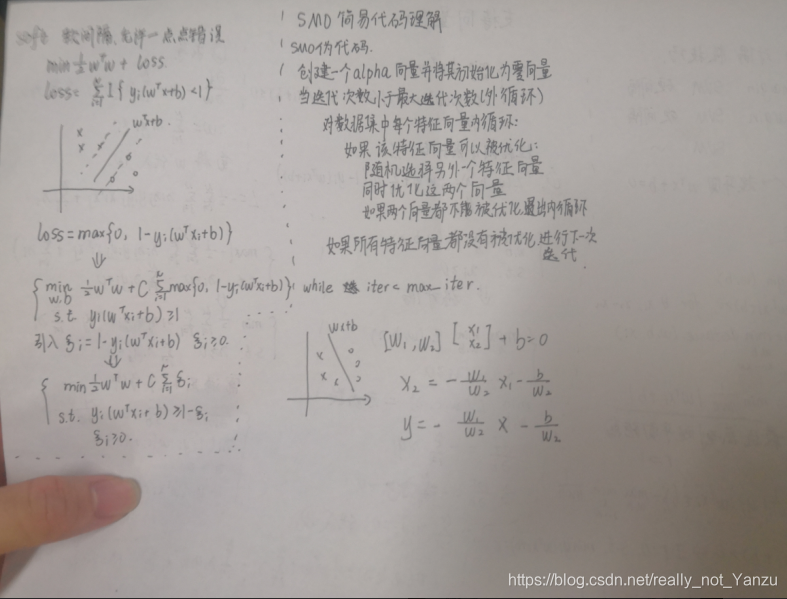 soft 软间隔, 允许一点点错误
min ½wᵀw + loss
loss = Σᵢ₌₁ᴺ I{yᵢ(wᵀxᵢ+b)<1}
wᵀx+b
loss = max{0, 1-yᵢ(wᵀxᵢ+b)}
⇓
{ min w,b ½wᵀw + C Σᵢ₌₁ᴺ max{0, 1-yᵢ(wᵀxᵢ+b)}
s.t. yᵢ(wᵀxᵢ+b) ≥1
引入 ξᵢ=1-yᵢ(wᵀxᵢ+b) ξᵢ≥0.
⇓
{ min ½wᵀw + C Σᵢ₌₁ᴺ ξᵢ
s.t. yᵢ(wᵀxᵢ+b) ≥1-ξᵢ
ξᵢ≥0.
SMO 简易代码理解
SMO伪代码.
创建一个alpha向量并将其初始化为零向量
当迭代次数小于最大迭代次数(外循环)
对数据集中每个特征向量内循环:
如果该特征向量可以被优化:
随机选择另外一个特征向量
同时优化这两个向量
如果两个向量都不能被优化,退出内循环
如果所有特征向量都没有被优化,进行下一次
迭代
while iter < max_iter.
wx+b
[w₁,w₂] [x₁ x₂] + b=0
x₂ = - w₁/w₂ x₁ - b/w₂
y = - w₁/w₂ x - b/w₂
https://blog.csdn.net/really_not_Yanzu